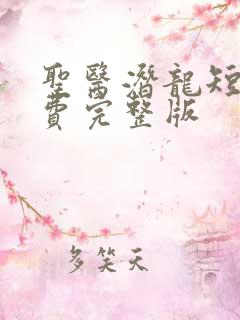 聖醫潛龍短
費完整版
多笑天